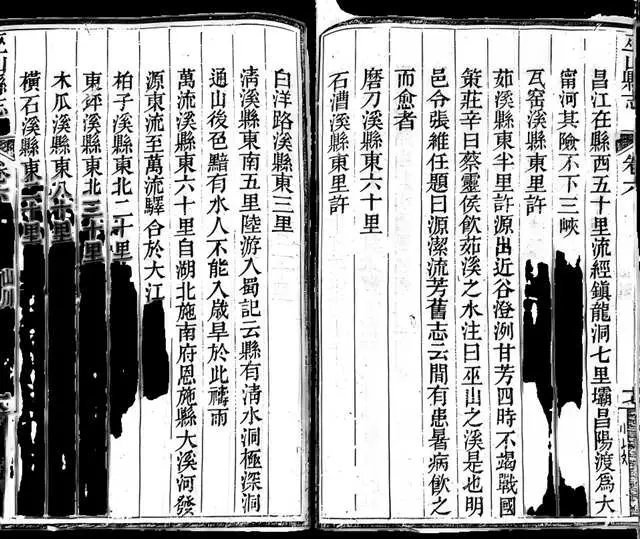 巫山縣志
卷六
昌江在縣西五十里流經鎮龍洞七里壩昌陽渡為大
甯河其險不下三峽
瓦窑溪縣東里許
茹溪縣東半里許源出近谷澄洌甘芳四時不竭戰國
策莊辛曰蔡靈侯飲茹溪之水注曰巫山之溪是也明
邑令張維任題曰源潔流芳舊志云間有患暑病飲之
而愈者
磨刀溪縣東六十里
石漕溪縣東里許
白洋路溪縣東三里
清溪縣東南五里陸游入蜀記云縣有清水洞極深洞
通山後邑黯有水人不能入歲旱於此禱雨
萬流溪縣東六十里自湖北施南府恩施縣大溪河發
源東流至萬流驛合於大江
柏子溪縣東北二十里
東坪溪縣東北三十里
木瓜溪縣東八十里
橫石溪縣東二十里
巫山縣志